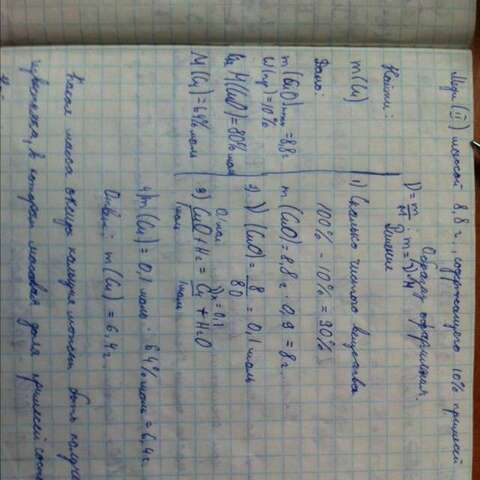 Меди (II) массой 8,8 г, содержащего 10% примесей
Образец оформления.
Найти:
m(Cu)
Дано:
m(CuO)техн = 8,8 г
W(пр) = 10%
M(CuO) = 80 г/моль
M(Cu) = 64 г/моль
ν = m/M ; m = ν·M
Решение
1) Сколько чистого вещества
100% - 10% = 90%
m(CuO) = 8,8 г · 0,9 = 8 г.
2) ν(CuO) = 8/80 = 0,1 моль
0,1 моль ν = 0,1
3) CuO + H2 = Cu + H2O
1 моль 1 моль
4) m(Cu) = 0,1 моль · 64 г/моль = 6,4 г.
Ответ: m(Cu) = 6,4 г.
Какая масса оксида кальция может быть получе
в котором массовая доля примесей сост